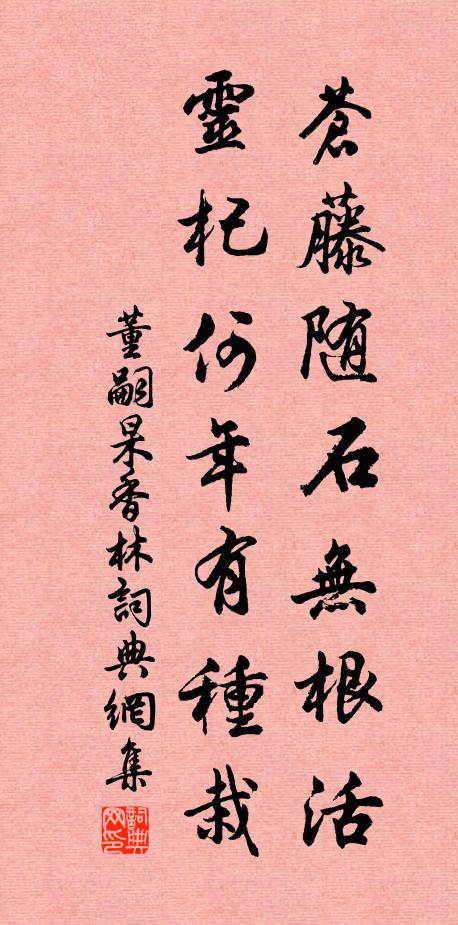 蒼藤随石無根活
靈杞何年有種栽
董嗣杲香林詞典網集
詞典网印